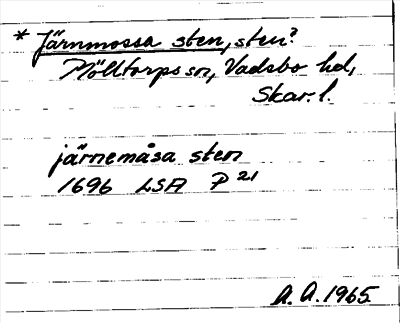 * Järnmossa sten, sten?
Mölltorps sn, Vadsbo hd,
Skar. l.
järnemåsa sten
1696 LSA P 21
A. A. 1965